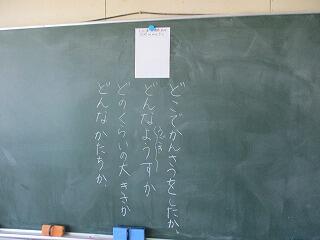 どこでかんさつをしたか、
どんなようすか
どのくらいの大きさか
どんなかたちか、